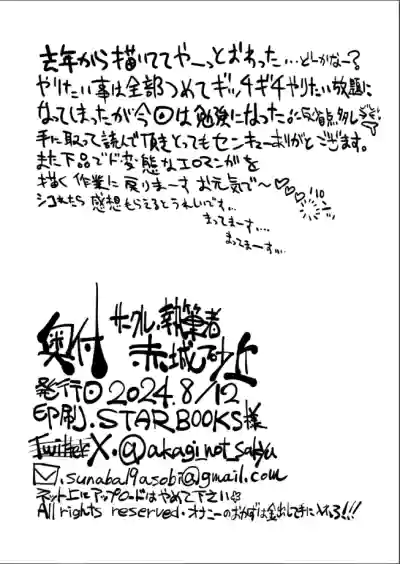 去年から描いててやーっとおわった…どしかなー?
やりたい事は全部つめてギッチギチやりたい放題に
なってしまったが今回は勉強になった。に反省点多し
手に取って読んで頂きとってもセンキューありがとうござます。
また下品でド変態なエロマンガを
描く作業に戻りまーす お元気で〜♡♡♡
シコれたら感想もらえるとうれしいです…
まってまーす…
まってまーす…
奥付
サークル.執筆者
赤城砂丘
発行日 2024.8/12
印刷.STARBOOKS様
Twitter X.@akagi_not_sakyu
.sunaba19asobi@gmail.com
ネット上にアップロードはやめて下さい
All rights reserved.オナニーのおかずは金出して手に入れろ!!!